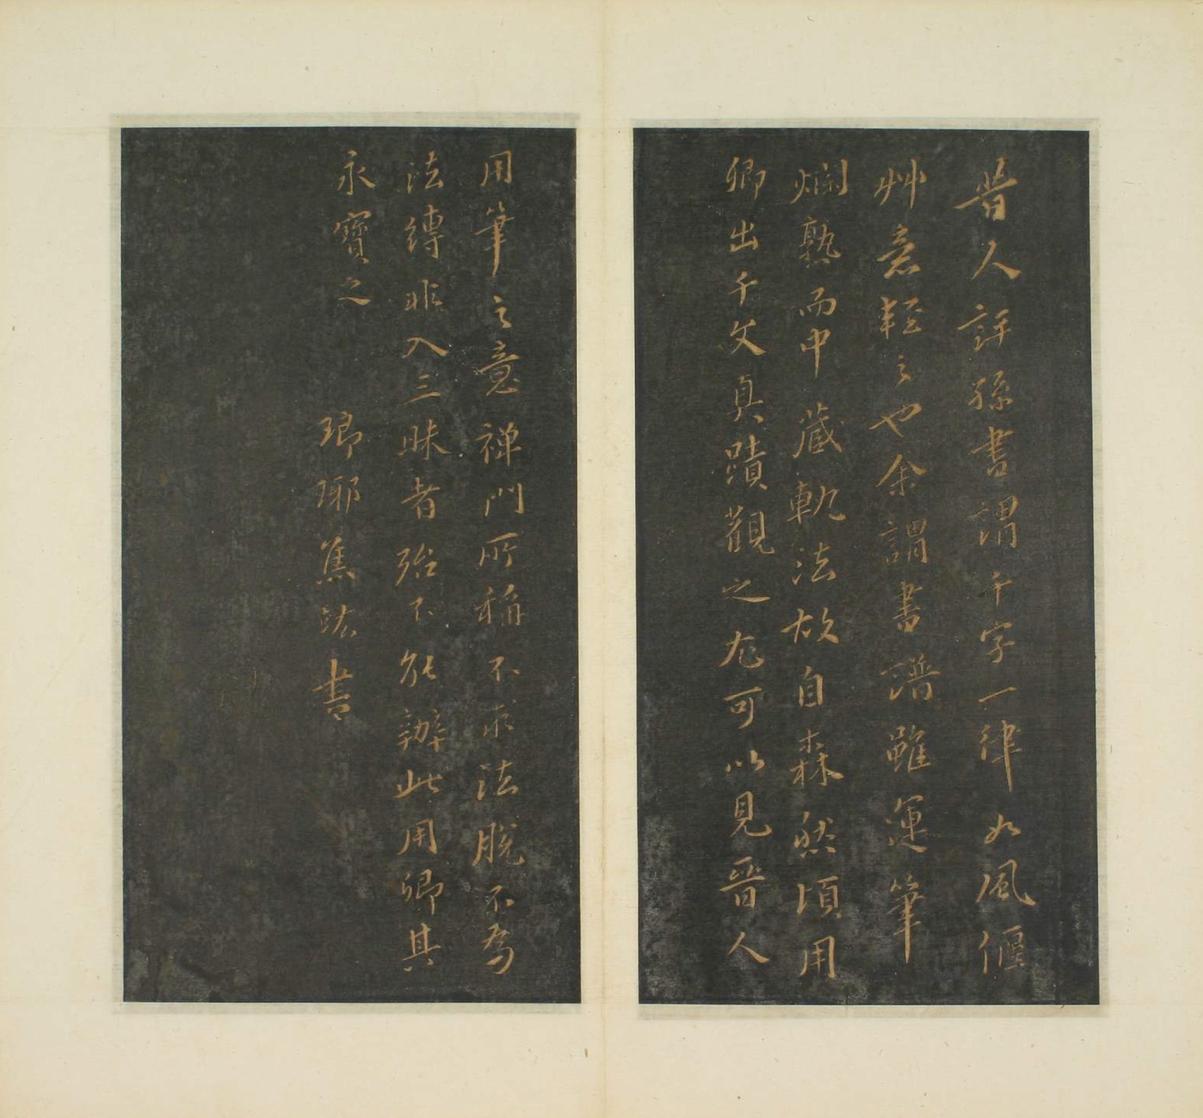 昔人評孫書謂千字一律如風偃
艸意輕之也余謂書譜雖運筆
爛熟而中藏軌法故自森然頃用
卿出千文真蹟觀之尤可以見晉人
用筆之意禅門所稱不求法脫不為
法縛非入三昧者殆不能辦此用卿其
永寶之
瑯琊焦竑書